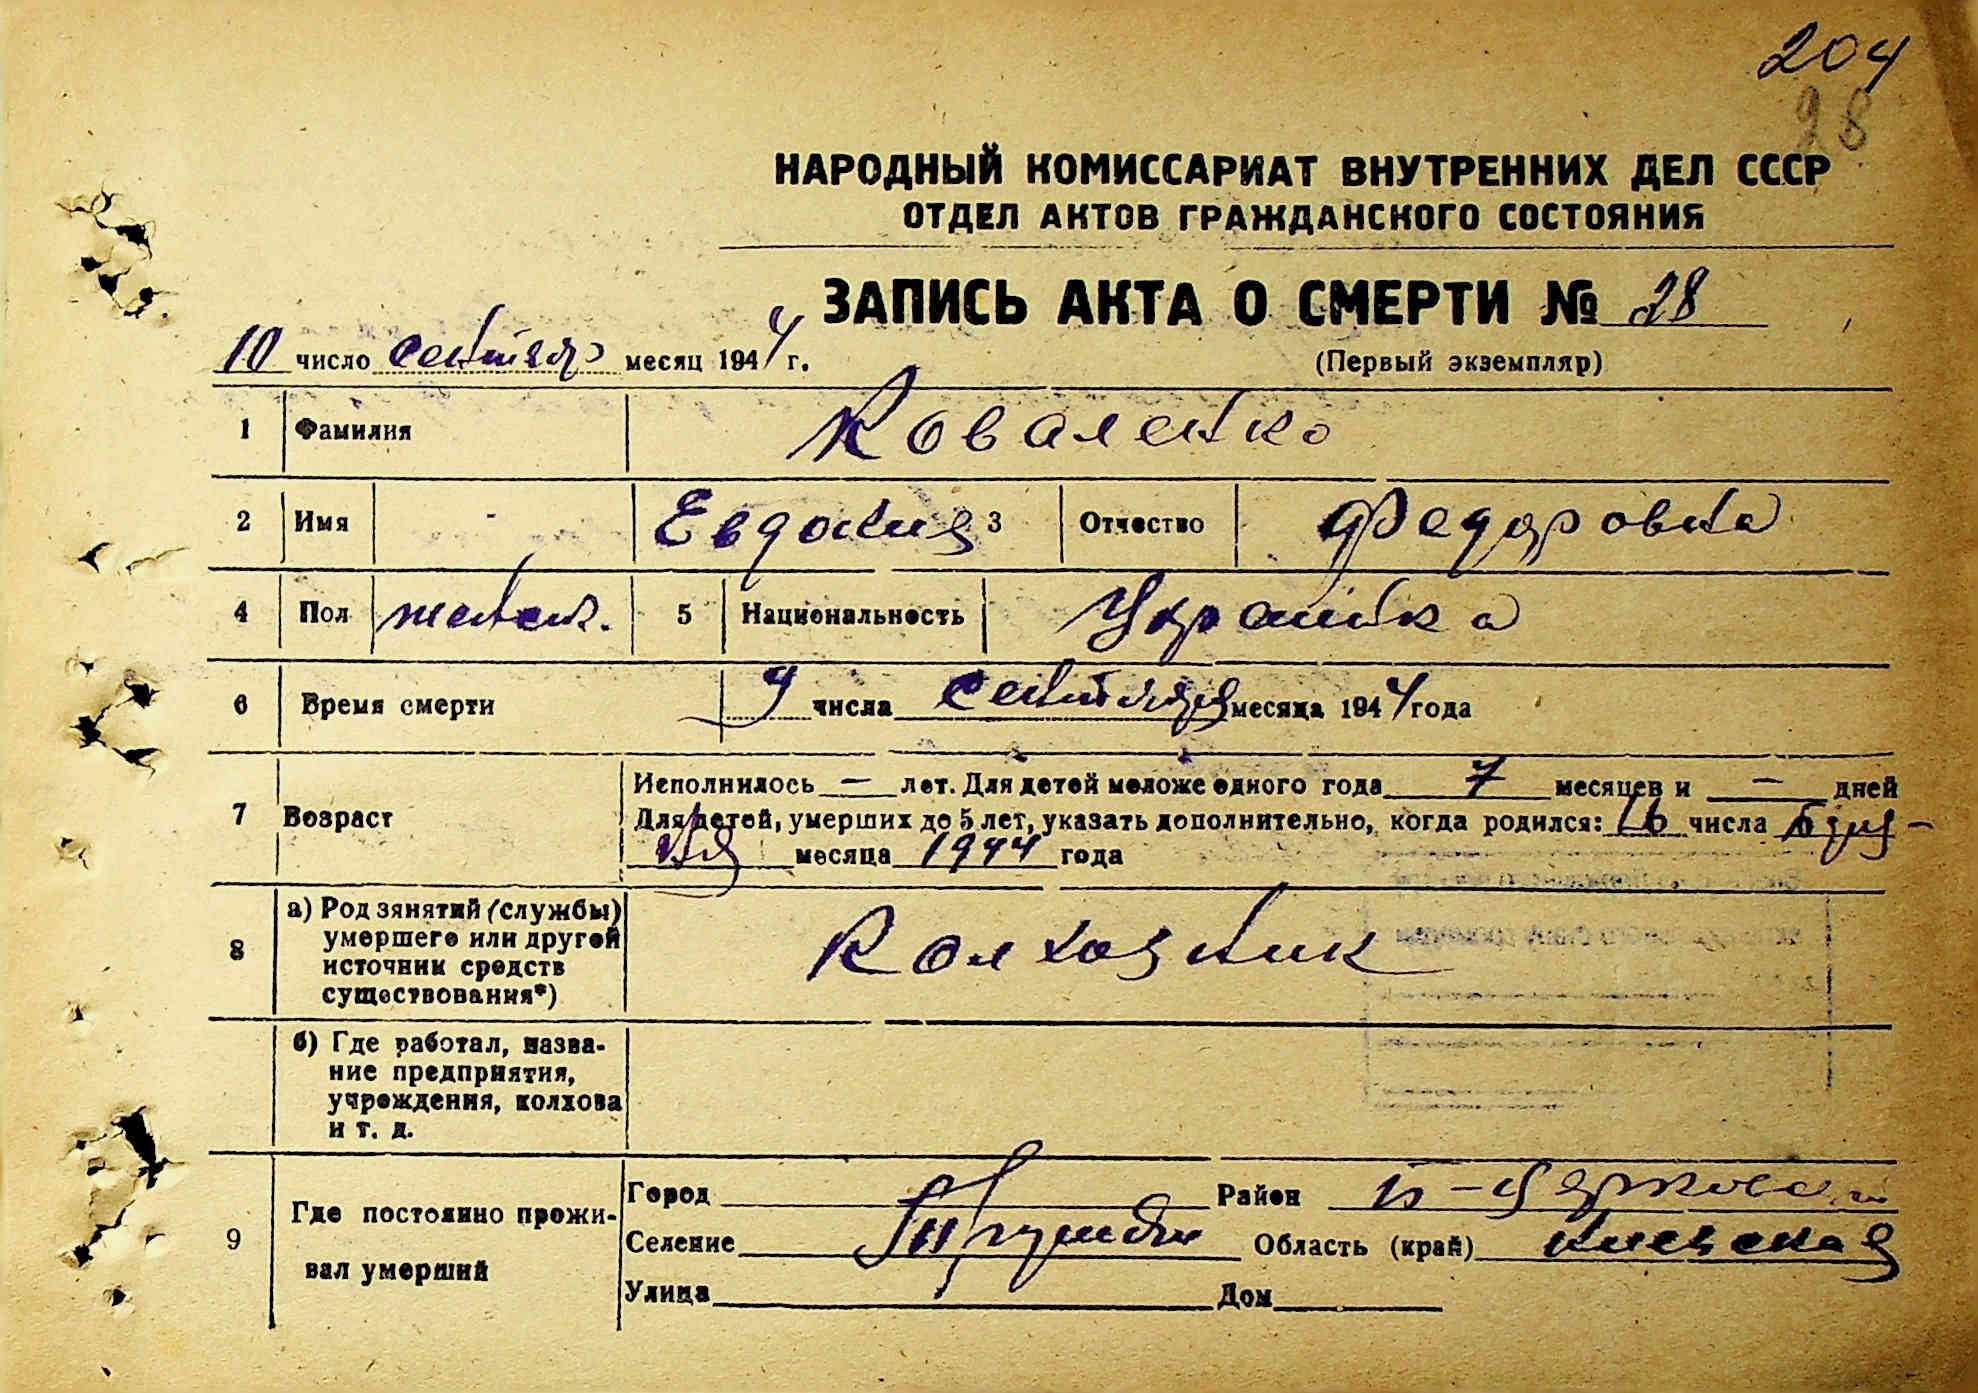 204
28
НАРОДНЫЙ КОМИССАРИАТ ВНУТРЕННИХ ДЕЛ СССР
ОТДЕЛ АКТОВ ГРАЖДАНСКОГО СОСТОЯНИЯ
ЗАПИСЬ АКТА О СМЕРТИ № 28
10 число сентября месяц 1944 г. (Первый экземпляр)
1 Фамилия Коваленко
2 Имя Евдокия 3 Отчество Федоровна
4 Пол женск. 5 Национальность Украинка
6 Время смерти 9 числа сентября месяца 1944 года
7 Возраст Исполнилось — лет. Для детей моложе одного года 7 месяцев и — дней
Для детей, умерших до 5 лет, указать дополнительно, когда родился: 16 числа
месяца 1944 года
8 а) Род занятий (службы) умершего или другой источник средств существования*) Колхозник
б) Где работал, назва-
ние предприятия,
учреждения, колхоза
и т. д.
9 Где постоянно прожи-
вал умерший
Город Район Б-Церковский
Селение Область (край) Киевская
Улица Дом